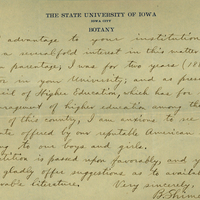 THE STATE UNIVERSITY OF IOWA
IOWA CITY
BOTANY
advantage to your institution
a manifold interest in this matter
parentage, I was for two years (18
in your University; and as pres
of Higher Education, which has for
agement of higher education among th
of this country, I am anxious to se
offered by our reputable American
to one boys and girls.
is passed upon favorably, and y
gladly offer suggestions as to availa
literature. Very sincerely,
B. Shime